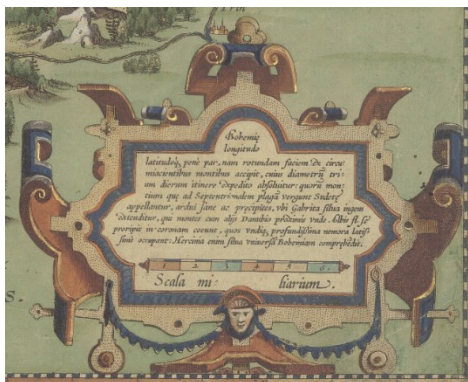 Bohemię
longitudo
latitudoq, penè par, nam rotundam faciem de circū
miacentibus montibus accipit, cuius diametrū tri=
um dierum itinere expedito absoluitur: quorū mon=
tium qui ad Septentrionalem plagā vergunt Sudetę
appellantur, ardui sane ac pręcipites, vbi Gabrita silua ingens
extenditur, qui montes cum alijs Danubio proximis vndiq,
in coronam coeunt, quos vndiq, profundissima nemora latis=
sime occupant: Hercinia enim silua vniversā Bohemiam comprehēdit.
Scala mi= liarium.
S.